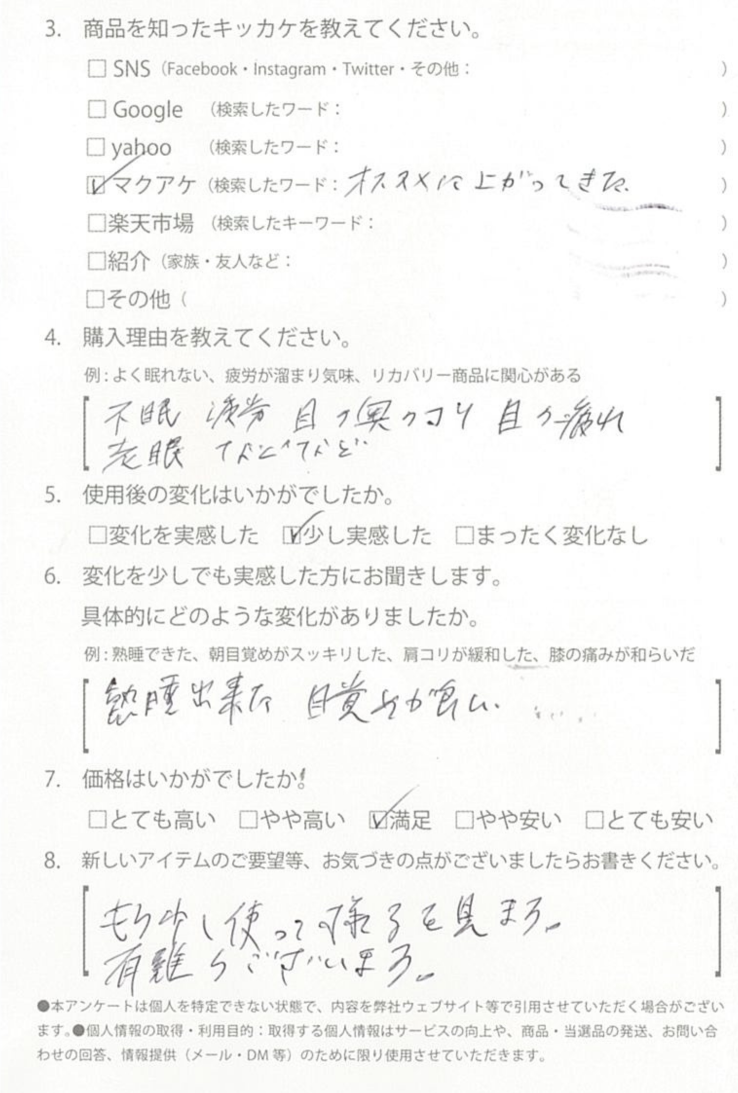 3. 商品を知ったキッカケを教えてください。
□ SNS（Facebook・Instagram・Twitter・その他： ）
□ Google （検索したワード： ）
□ yahoo （検索したワード： ）
☑ マクアケ（検索したワード：オススメに上がってきた。 ）
□楽天市場（検索したキーワード： ）
□紹介（家族・友人など： ）
□その他（ ）
4. 購入理由を教えてください。
例：よく眠れない、疲労が溜まり気味、リカバリー商品に関心がある
不眠 疲労 目の奥のコリ 目の疲れ
老眼 などなど
5. 使用後の変化はいかがでしたか。
□変化を実感した ☑少し実感した □まったく変化なし
6. 変化を少しでも実感した方にお聞きします。
具体的にどのような変化がありましたか。
例：熟睡できた、朝目覚めがスッキリした、肩コリが緩和した、膝の痛みが和らいだ
熟睡出来た 目覚めが良い。
7. 価格はいかがでしたか。
□とても高い □やや高い ☑満足 □やや安い □とても安い
8. 新しいアイテムのご要望等、お気づきの点がございましたらお書きください。
もう少し使って様子を見ます。
有難うございます。
●本アンケートは個人を特定できない状態で、内容を弊社ウェブサイト等で引用させていただく場合がござい
ます。●個人情報の取得・利用目的：取得する個人情報はサービスの向上や、商品・当選品の発送、お問い合
わせの回答、情報提供（メール・DM 等）のために限り使用させていただきます。